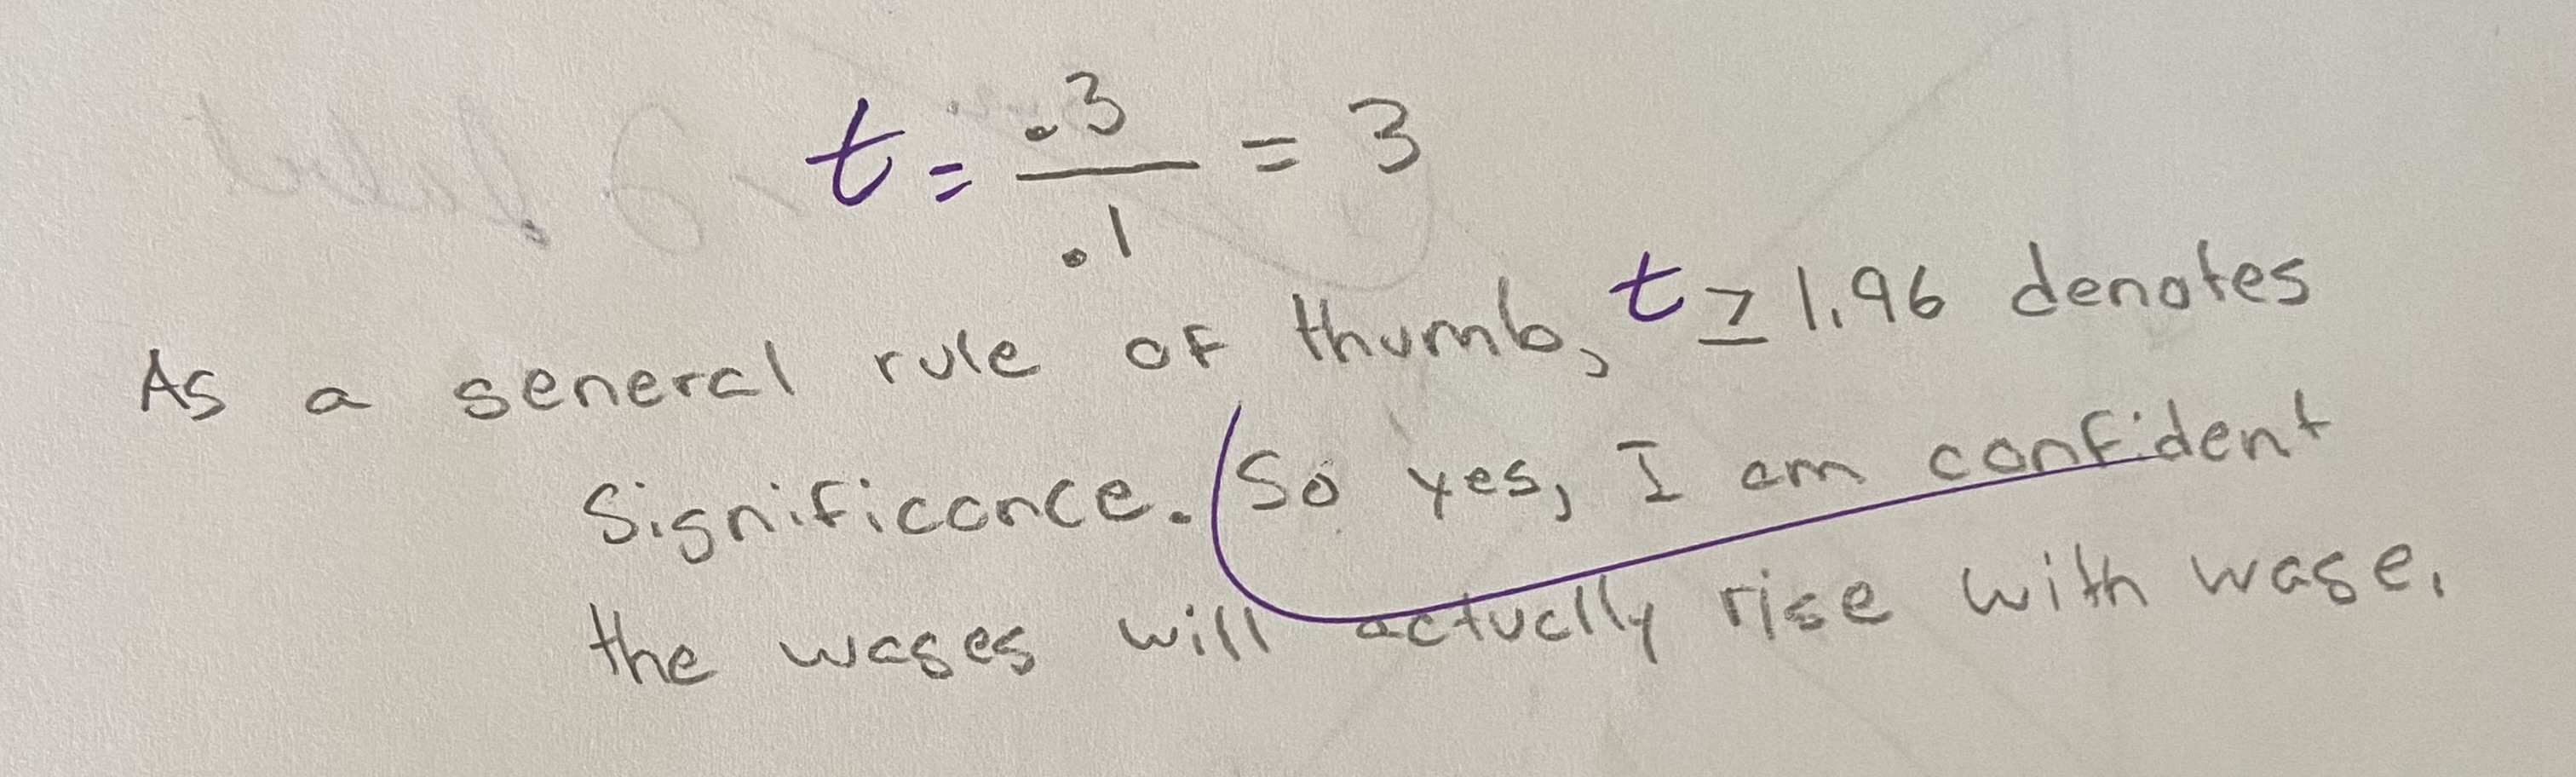 t = .3 / .1 = 3
As a general rule of thumb, t ≥ 1.96 denotes
significance. (So yes, I am confident
the wages will actually rise with wage.